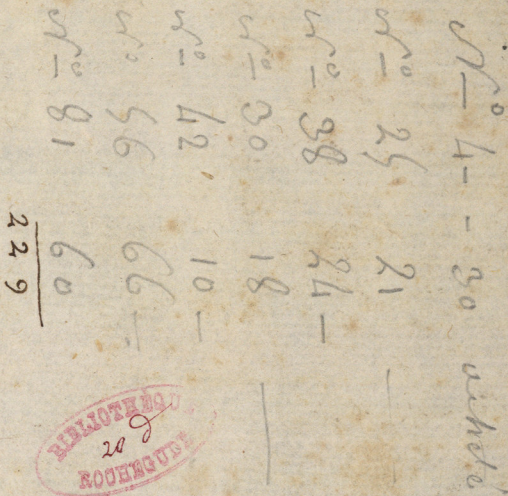 Nº 4 - - 30
Nº 25 21 —
Nº 38 24 —
Nº 30 18 —
Nº 42 10 —
nº 56 66 —
Nº 81 60
229
BIBLIOTHÈQU
20 d
ROCHEGUDE